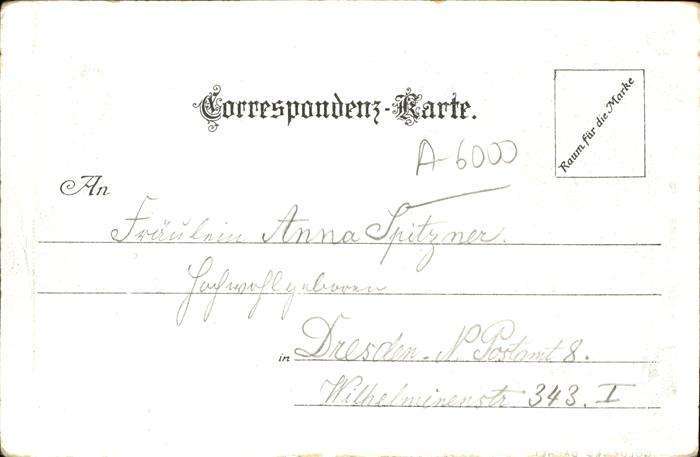 Correspondenz-Karte.
Raum für die Marke
A-6000
An
Fräulein Anna Spitzner.
Hochwohlgeboren
in Dresden-N. Postamt 8.
Wilhelminenstr 343. I